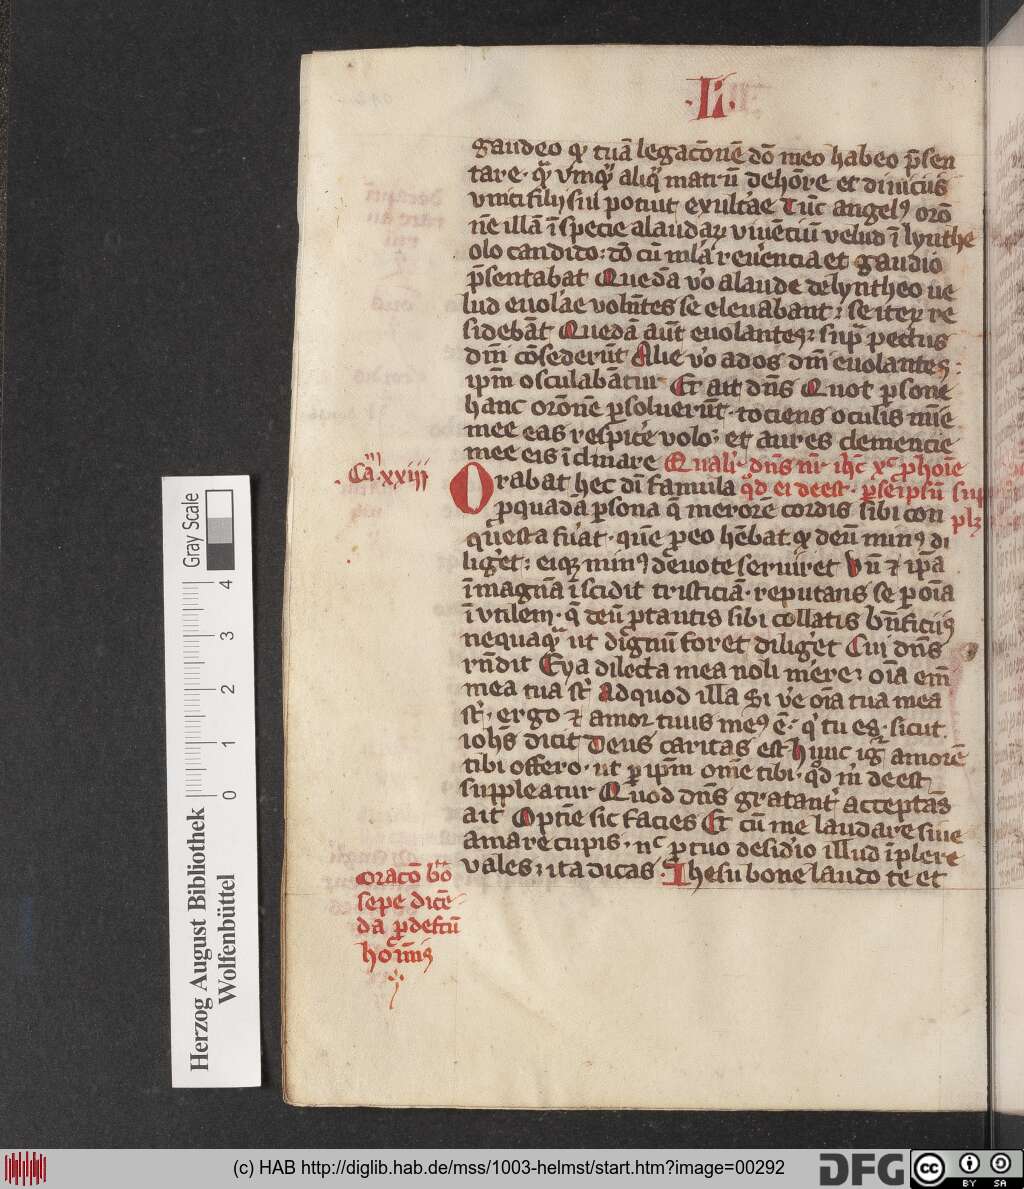 ·L·
gaudeo qꝫ tuā legacōnē dō meo habeo p̄sen
tare· qͣ vmqͣ aliqͥ matrū dehōre et diuiciis
vnici filij sui potiut exultāe Tūc angelꝰ orō
nē illā ī specie alaudaꝝ viuēciū velud ī lynthe
olo candido: dō cū mlā reuēncia et gaudio
p̄sentabat Quedā v̄o alaude de lyntheo ue
lud euolāe volētes se eleuabant: se iteꝝ re
sidebāt Quedā aūt euolantes: supͣ pectus
dn̄i cōsederūt Alie v̄o ad os dn̄i euolantes:
ip̄m osculabātur Et ait dn̄s Quot ꝑsone
hanc orōnē ꝑsoluerūt· tociens oculis mīe
mee eas respicēe volo: et aures clemencie
mee eis īclinare Qualiͬ dn̄s nr̄ ih̄c xͨ ꝓ hoīe
Ca.xxiiij
Orabat hec dī famula qd̄ ei deest· ꝑ seipsū sup
ꝓ quadā ꝑsona q̄ merorē cordis sibi con plꝫ
q̄uesta fuāt· quē ꝓ eo hēbat qꝫ deū minꝰ di
ligēt: eiqꝫ minꝰ deuote seruiret Vn̄ ⁊ ip̄a
ī magnā īscidit tristiciā· reputans se ꝓ oīa
īvtilem· q̄ deū ꝓ tantis sibi collatis bn̄ficiis
nequaqͣ ut dignū foret diligēt Cui dn̄s
rn̄dit Eya dilecta mea noli mēre: oīa em̄
mea tua st̄ Ad quod illa Si v̄e oīa tua mea
st̄· ergo ⁊ amor tuus meꝰ ē· qͥ tu es· sicut
ioh̄s dicit Deus caritas est hunc igͬ amorē
tibi offero· ut ꝑ ip̄m om̄e tibi· qd̄ mͥ deest
suppleatur Quod dn̄s gratantͬ acceptās
ait Optīe sic facies Et cū me laudare siue
amare cupis· nͨ ꝓ tuo desidīo illud īplere
vales: ita dicas· Ihesu bone laudo te et
oracō bō
sepe dicē
da ꝓ defectū
hoīnis
Gray Scale
4
3
2
1
0
Herzog August Bibliothek
Wolfenbüttel
(c) HAB http://diglib.hab.de/mss/1003-helmst/start.htm?image=00292
DFG
cc
BY SA